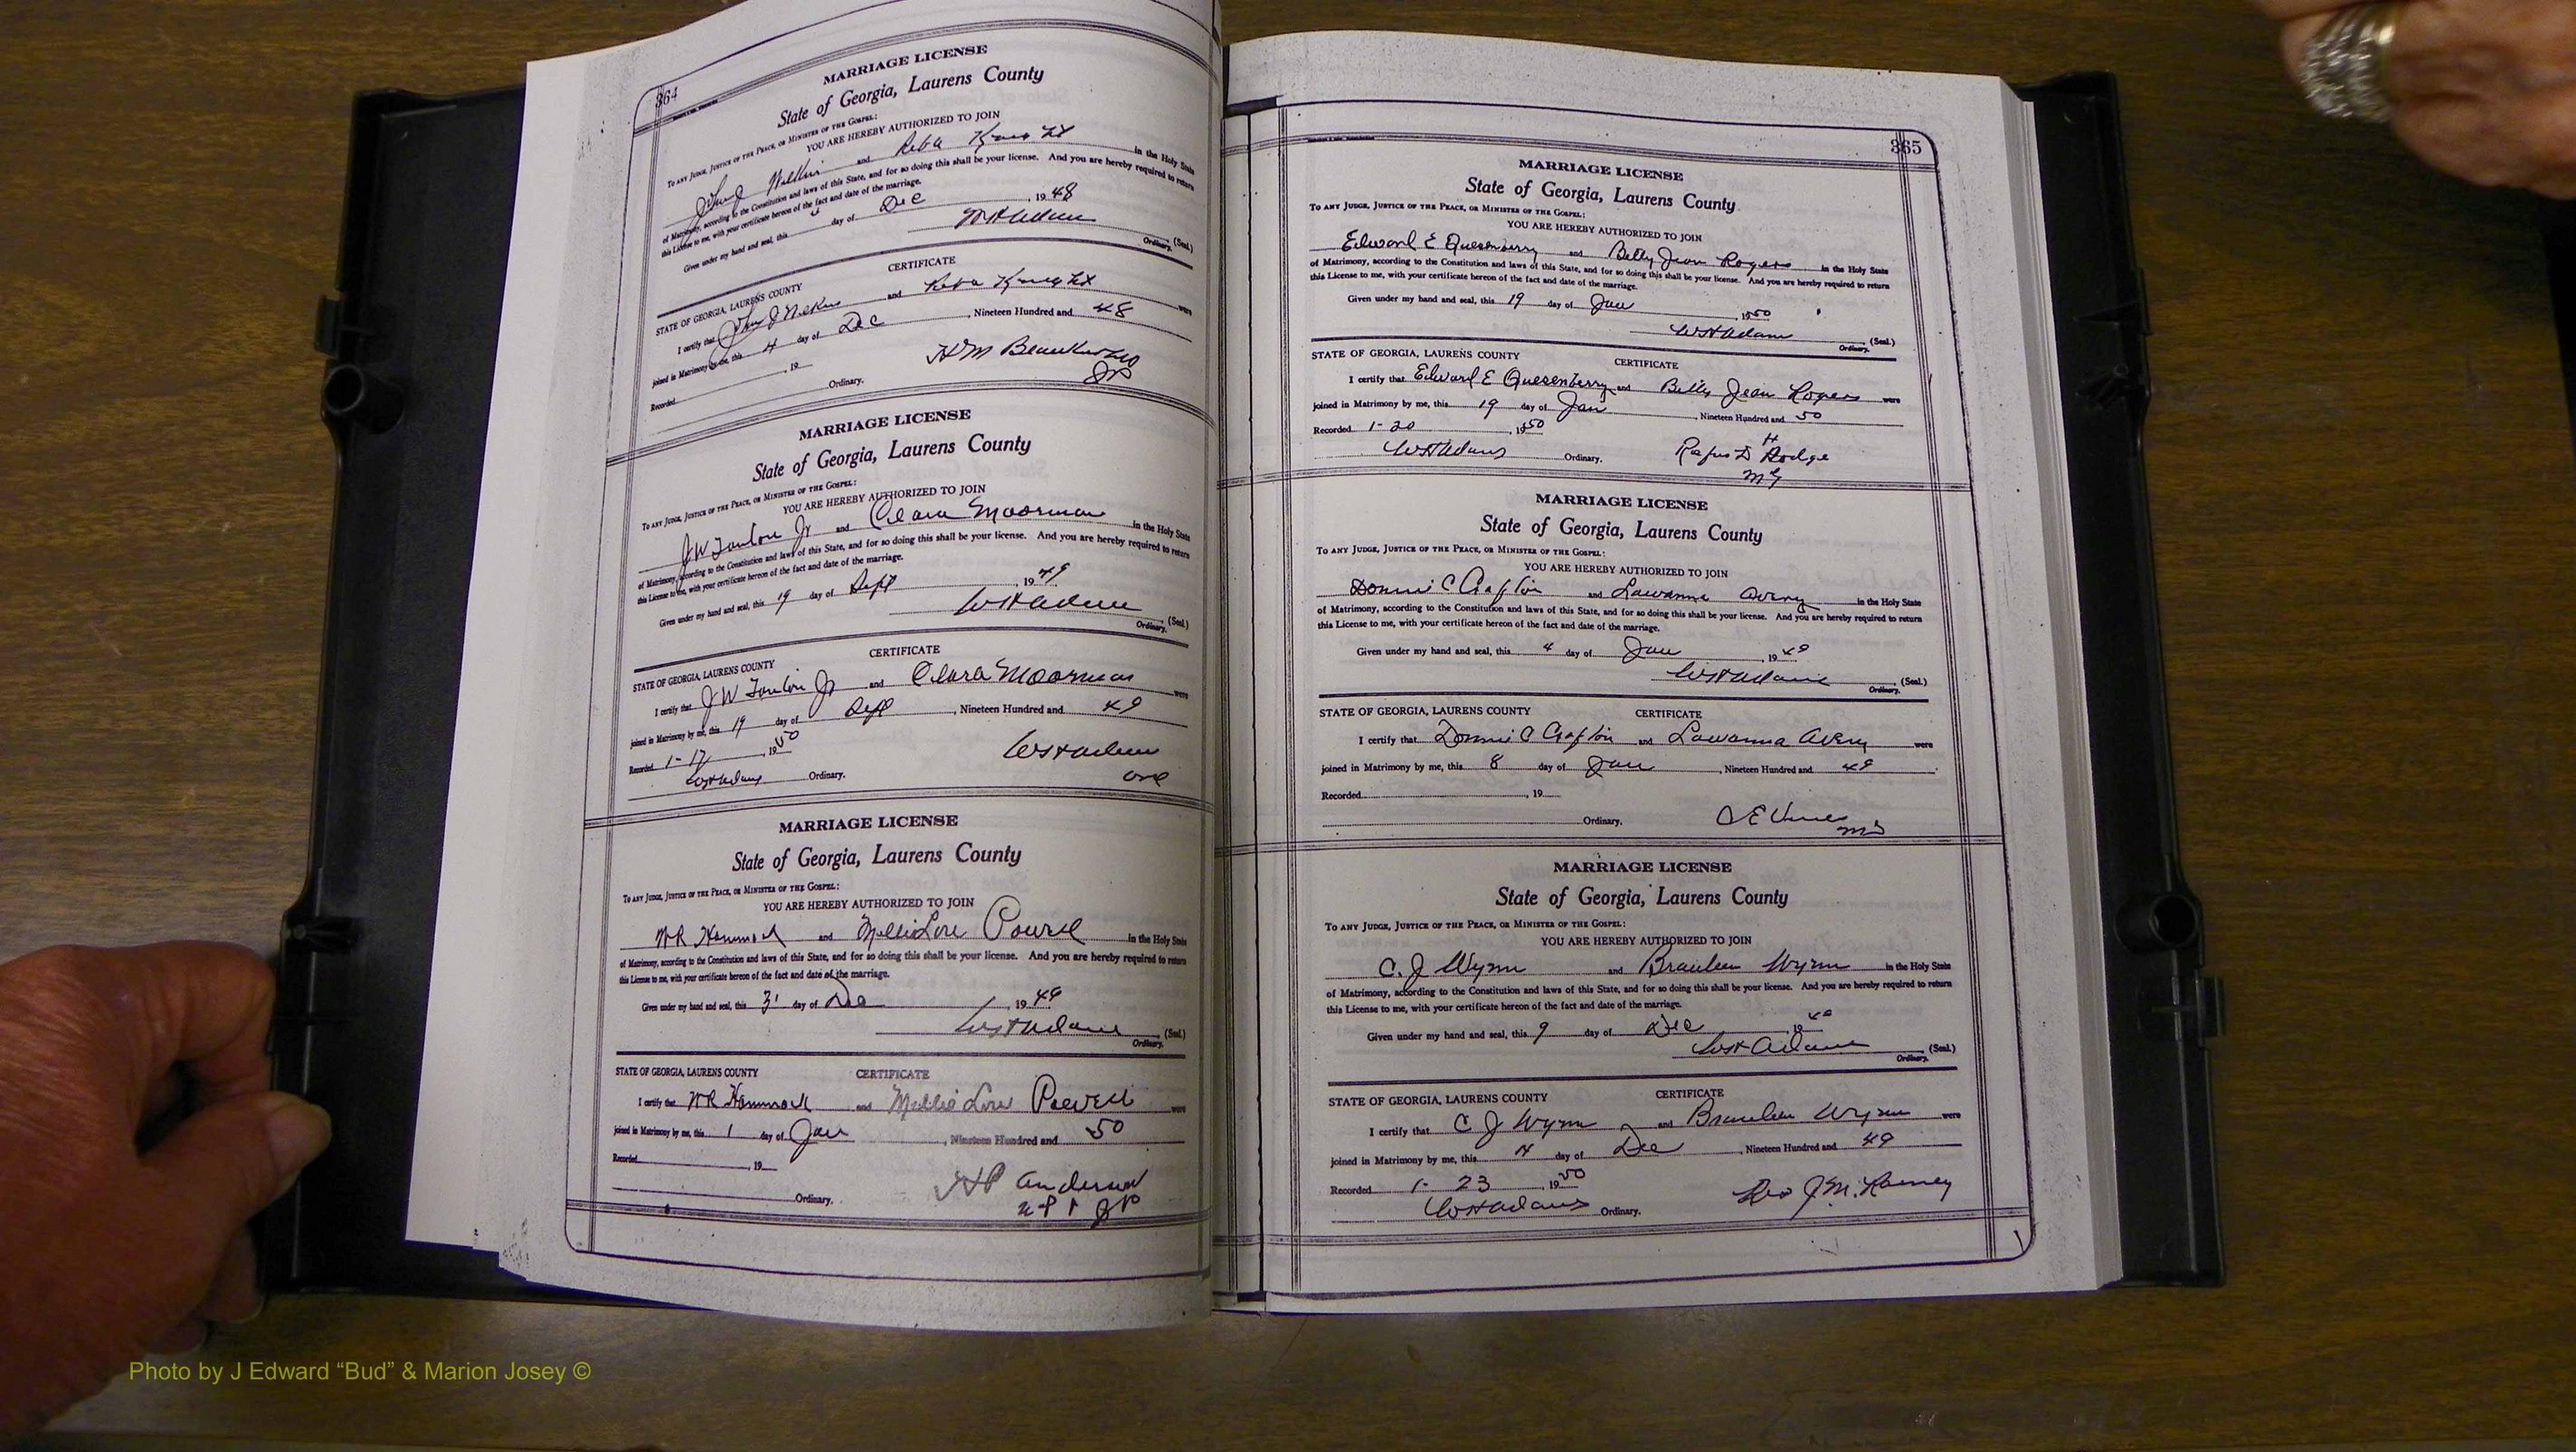 364
MARRIAGE LICENSE
State of Georgia, Laurens County
To any Judge, Justice of the Peace, or Minister of the Gospel:
YOU ARE HEREBY AUTHORIZED TO JOIN
and Reba Knight in the Holy State
of Matrimony, according to the Constitution and laws of this State, and for so doing this shall be your license. And you are hereby required to return
this License to me, with your certificate hereof of the fact and date of the marriage.
Given under my hand and seal, this day of Dec, 1948
W H Adams (Seal.)
Ordinary.
CERTIFICATE
STATE OF GEORGIA, LAURENS COUNTY
I certify that and Reba Knight were
joined in Matrimony by me, this 4 day of Dec, Nineteen Hundred and 48
Recorded , 19
H M
Ordinary. JP
MARRIAGE LICENSE
State of Georgia, Laurens County
To any Judge, Justice of the Peace, or Minister of the Gospel:
YOU ARE HEREBY AUTHORIZED TO JOIN
J W Jr and Clara Moorman in the Holy State
of Matrimony, according to the Constitution and laws of this State, and for so doing this shall be your license. And you are hereby required to return
this License to me, with your certificate hereon of the fact and date of the marriage.
Given under my hand and seal, this 19 day of Sept, 1949
W H Adams (Seal.)
Ordinary.
CERTIFICATE
STATE OF GEORGIA, LAURENS COUNTY
I certify that J W Jr and Clara Moorman were
joined in Matrimony by me, this 19 day of Sept, Nineteen Hundred and 49
Recorded 1-17, 1950
W H Adams
W H Adams Ordinary. Ord
MARRIAGE LICENSE
State of Georgia, Laurens County
To any Judge, Justice of the Peace, or Minister of the Gospel:
YOU ARE HEREBY AUTHORIZED TO JOIN
W R Hammock and Powell in the Holy State
of Matrimony, according to the Constitution and laws of this State, and for so doing this shall be your license. And you are hereby required to return
this License to me, with your certificate hereon of the fact and date of the marriage.
Given under my hand and seal, this 31 day of Dec, 1949
W H Adams (Seal.)
Ordinary.
STATE OF GEORGIA, LAURENS COUNTY CERTIFICATE
I certify that W R Hammock and Powell were
joined in Matrimony by me, this 1 day of Jan, Nineteen Hundred and 50
Recorded , 19
Anderson
Ordinary. JP
365
MARRIAGE LICENSE
State of Georgia, Laurens County
To any Judge, Justice of the Peace, or Minister of the Gospel:
YOU ARE HEREBY AUTHORIZED TO JOIN
Edward E Quesenberry and Betty Jean Rogers in the Holy State
of Matrimony, according to the Constitution and laws of this State, and for so doing this shall be your license. And you are hereby required to return
this License to me, with your certificate hereon of the fact and date of the marriage.
Given under my hand and seal, this 19 day of Jan 1950
W H Adams (Seal.)
Ordinary.
STATE OF GEORGIA, LAURENS COUNTY CERTIFICATE
I certify that Edward E Quesenberry and Betty Jean Rogers were
joined in Matrimony by me, this 19 day of Jan, Nineteen Hundred and 50
Recorded 1-20, 1950
W H Adams Ordinary. Rufus D Hodge
MG
MARRIAGE LICENSE
State of Georgia, Laurens County
To any Judge, Justice of the Peace, or Minister of the Gospel:
YOU ARE HEREBY AUTHORIZED TO JOIN
Donnie C Crafton and Lawanna Avery in the Holy State
of Matrimony, according to the Constitution and laws of this State, and for so doing this shall be your license. And you are hereby required to return
this License to me, with your certificate hereon of the fact and date of the marriage.
Given under my hand and seal, this 4 day of Jan, 1949
W H Adams (Seal.)
Ordinary.
STATE OF GEORGIA, LAURENS COUNTY CERTIFICATE
I certify that Donnie C Crafton and Lawanna Avery were
joined in Matrimony by me, this 8 day of Jan, Nineteen Hundred and 49
Recorded , 19
Ordinary. C E
MARRIAGE LICENSE
State of Georgia, Laurens County
To any Judge, Justice of the Peace, or Minister of the Gospel:
YOU ARE HEREBY AUTHORIZED TO JOIN
C. J Wynn and Wynn in the Holy State
of Matrimony, according to the Constitution and laws of this State, and for so doing this shall be your license. And you are hereby required to return
this License to me, with your certificate hereon of the fact and date of the marriage.
Given under my hand and seal, this 9 day of Dec, 1949
W H Adams (Seal.)
Ordinary.
STATE OF GEORGIA, LAURENS COUNTY CERTIFICATE
I certify that C J Wynn and Wynn were
joined in Matrimony by me, this day of Dec, Nineteen Hundred and 49
Recorded 1-23, 1950
W H Adams Ordinary. Rev J. M. Rainey
Photo by J Edward “Bud” & Marion Josey ©